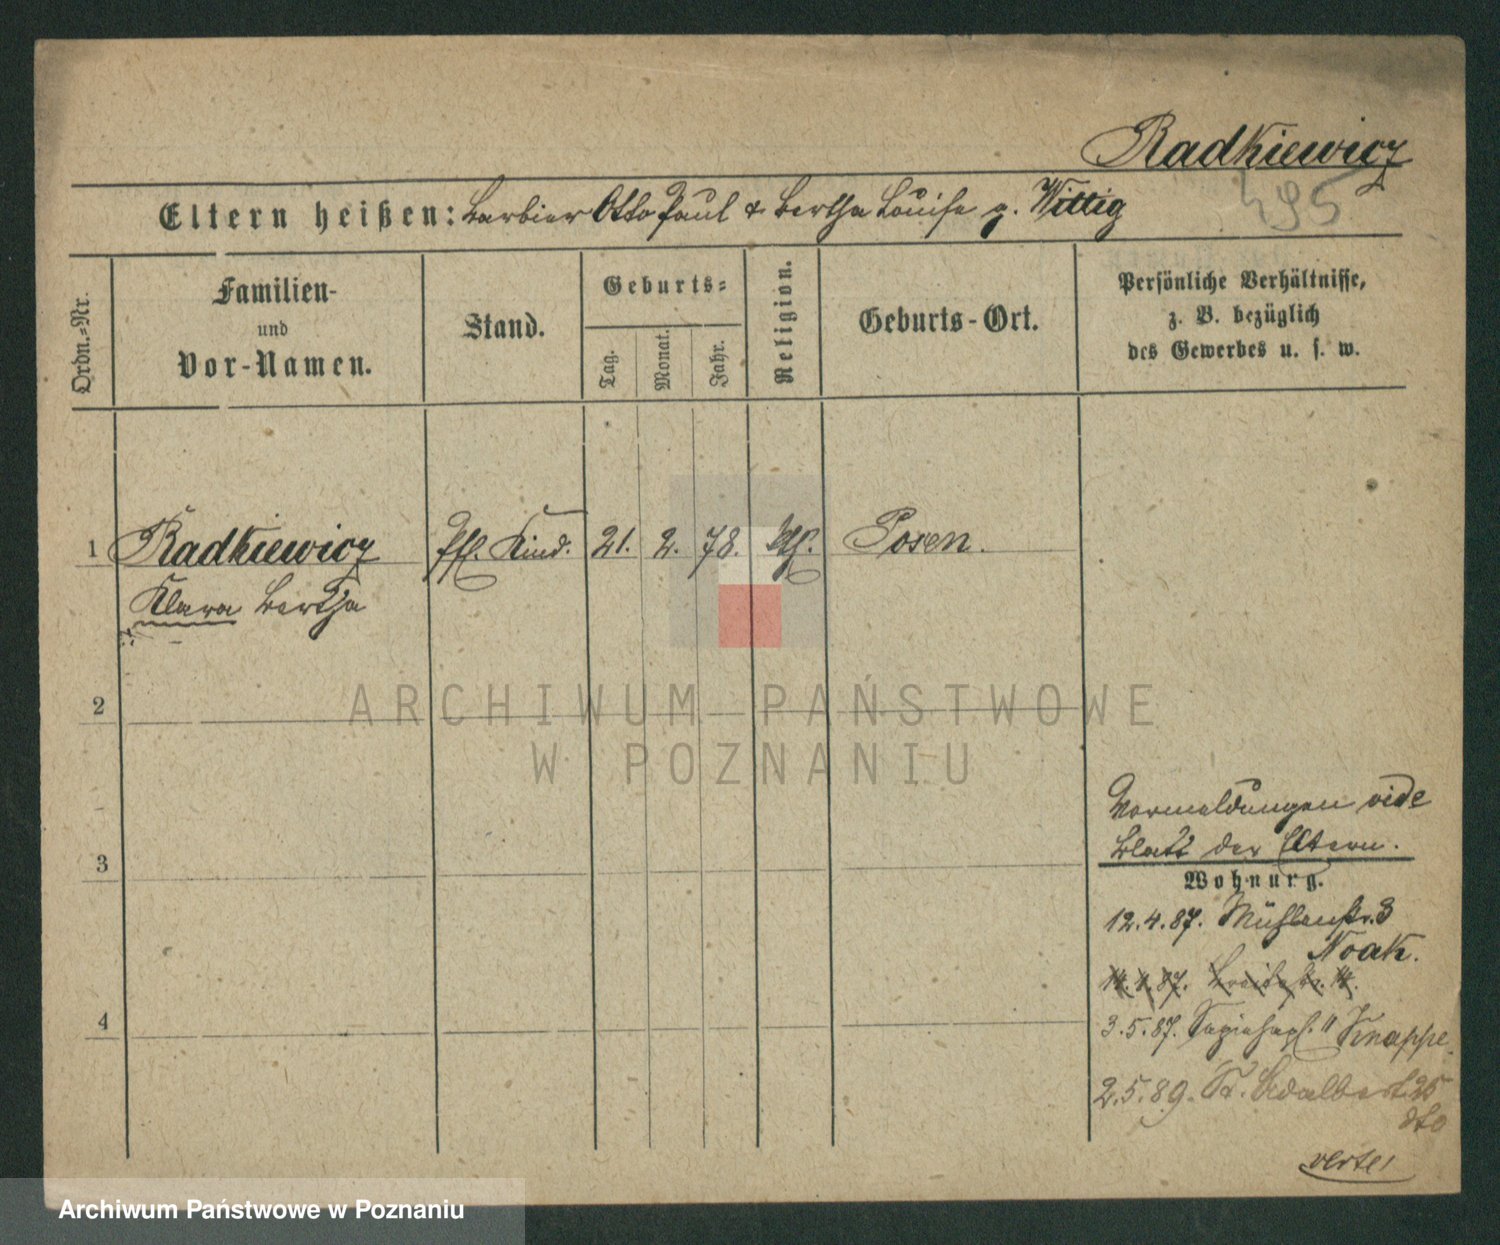 Radkiewicz
495
Eltern heißen: Barbier Otto Paul & Bertha Louise g. Wittig
Ordn.=Nr.
Familien-
und
Vor-Namen.
Stand.
Geburts=
Tag.
Monat.
Jahr.
Religion.
Geburts-Ort.
Persönliche Verhältnisse,
z. B. bezüglich
des Gewerbes u. s. w.
1 Radkiewicz Pfl. Kind. 21. 2. 78. Posen.
Klara Bertha
2
3
4
Vormeldungen vide
Blatt der Eltern.
Wohnung.
12.4.87. Mühlenstr. 3
Noak.
14.4.87. Breitestr. 14.
3.5.87. 11 Knappe.
2.5.89. St. Adalbert 25
dto
verte!
ARCHIWUM PAŃSTWOWE
W POZNANIU
Archiwum Państwowe w Poznaniu